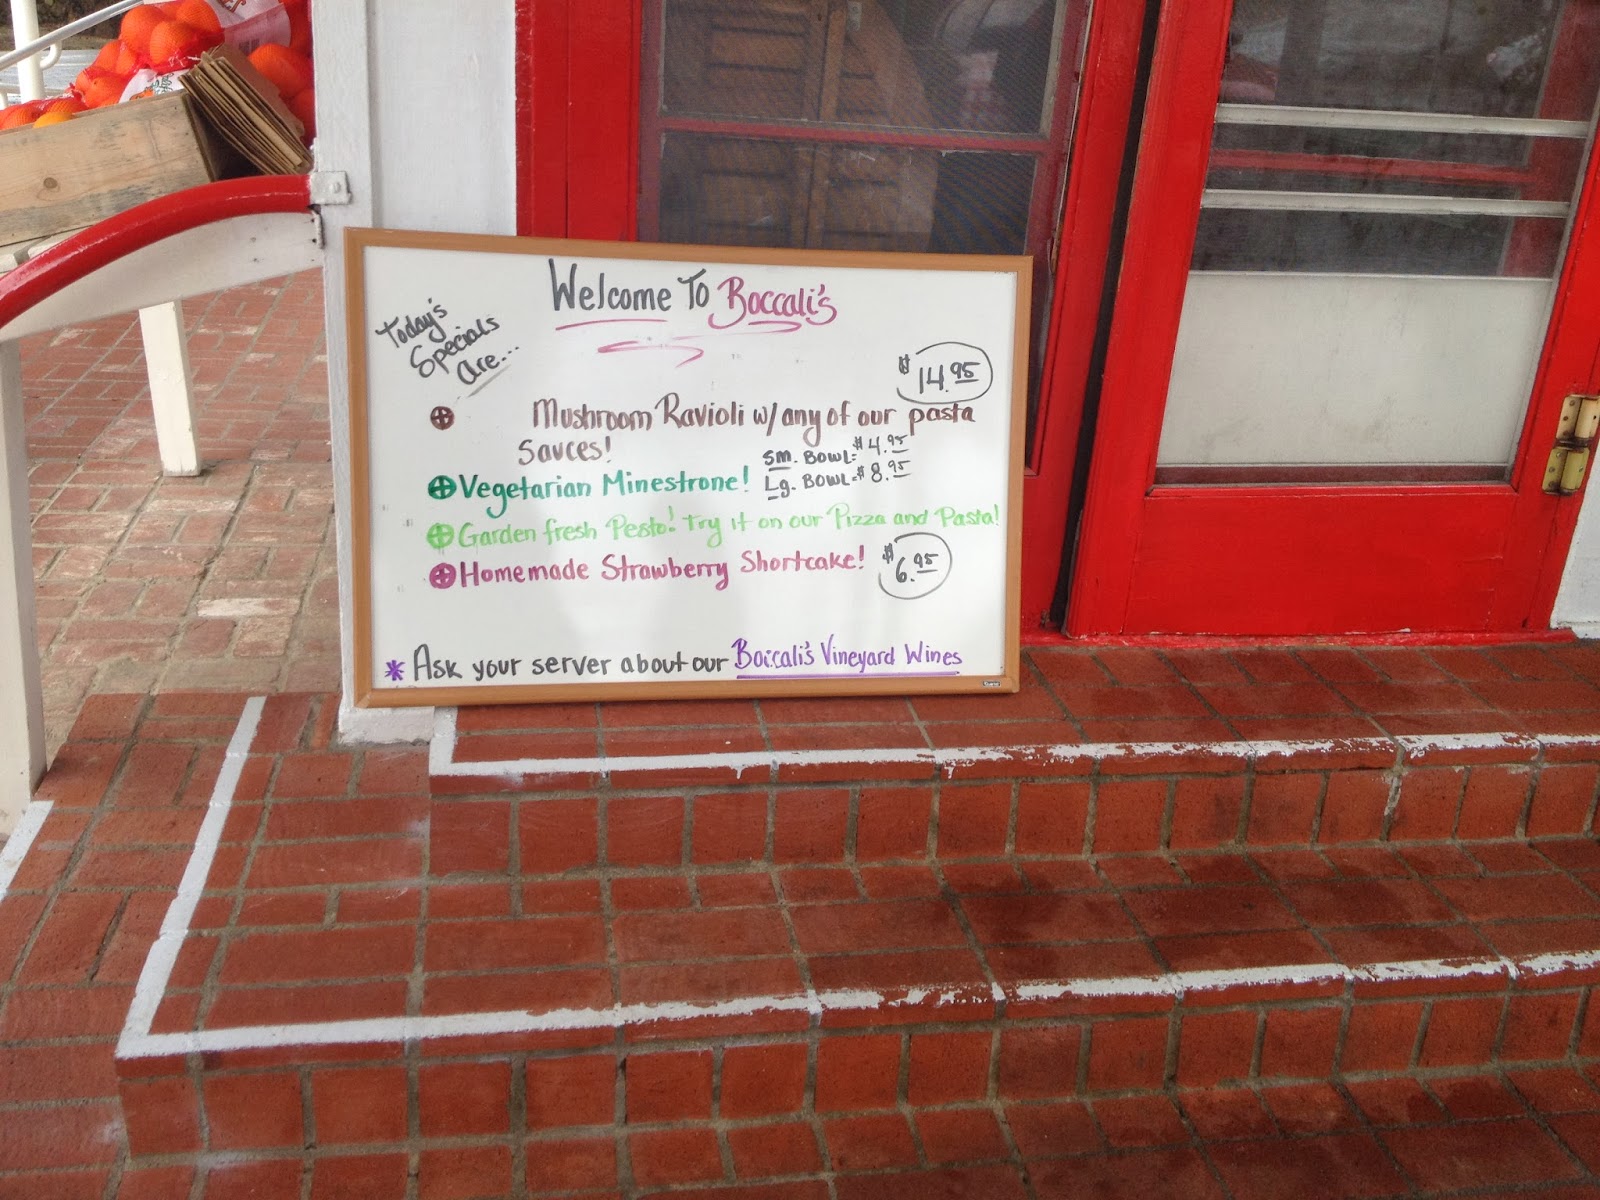 Welcome To Boccali's
Today's
Specials
are...
$14.95
Mushroom Ravioli w/ any of our pasta
Sauces!
Sm. BOWL=$4.95
Vegetarian Minestrone!
Lg. BOWL=$8.95
Garden fresh Pesto! Try it on our Pizza and Pasta!
Homemade Strawberry Shortcake! $6.95
* Ask your server about our Boccali's Vineyard Wines